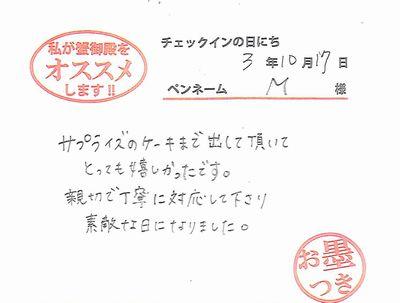 私が蟹御殿を
オススメ
します!!
チェックインの日にち
3年10月17日
ペンネーム M 様
サプライズのケーキまで出して頂いて
とっても嬉しかったです。
親切で丁寧に対応して下さり
素敵な日になりました。
お墨
つき